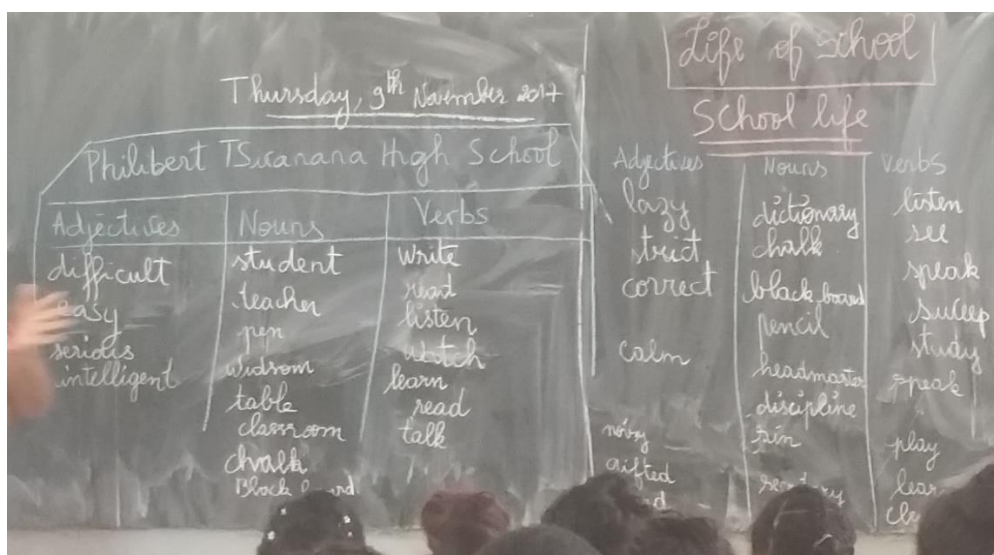 Thursday, 9th November 2017
Philibert Tsiranana High School
Adjectives Nouns Verbs
difficult student write
easy teacher read
serious pen listen
intelligent widsom watch
table learn
classroom read
chalk talk
Life of school
School life
Adjectives Nouns Verbs
lazy dictionary listen
strict chalk see
correct black board speak
pencil study
calm headmaster speak
discipline
play
gifted